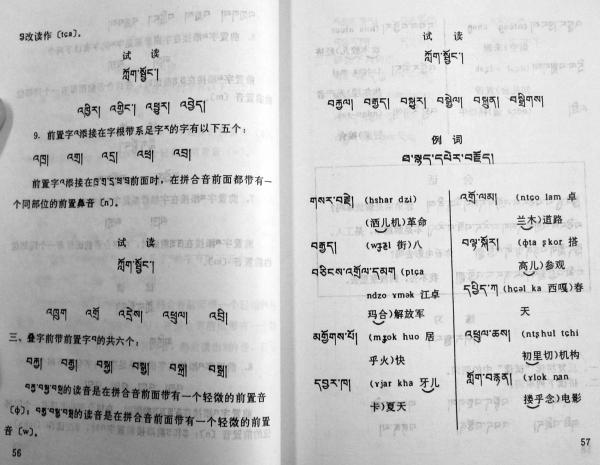 改读作〔tɕa〕。
试 读
ཀློག་སྦྱོང་།
འཁྱིར། འགྱིང་། འཕྱུར། འབྱེད།
9. 前置字འ添接在字根带系足字ར的字有以下五个：
འཁྲ། འགྲ། འདྲ། འཕྲ། འབྲ།
前面时，在拼合音前面都带有一
个同部位的前置鼻音〔n〕。
试 读
ཀློག་སྦྱོང་།
འཁྲུག འགྲོ འདྲེས། འཕྲུལ། འབྲི།
三、叠字前带前置字བ的共六个：
的读音是在拼合音前面带有一个轻微的前置音
〔ɸ〕；的读音是在拼合音前面带有一个轻微的前置
音〔w〕。
56
试 读
ཀློག་སྦྱོང་།
བརྐྱལ། བརྒྱད། བསྐྱར། བསྒྱེལ། བསྐྲུན། བསྒྲིགས།
例 词
ཐ་སྙད་དཔེར་བརྗོད།
གསར་བརྗེ། (hshar dʑi)
(洒儿机)革命
བརྒྱད། (wʒʑl 街)八
བཅིངས་འགྲོལ་དམག (ptɕa
ndzo ɤmək 江卓
玛合)解放军
མགྱོགས་པོ། (mʒok huo 居
乎火)快
དབྱར་ཁ། (ɤjar kha 牙儿
卡)夏天
འགྲོ་ལམ། (ntɕo lam 卓
兰木)道路
བལྟ་སྐོར། (ɸta ʂkor 搭
高儿)参观
དཔྱིད་ཀ (hɕəl ka 西嘎)春
天
འཕྲུལ་ཆས། (ntʂhul tɕhi
初里切)机构
ཀློག་བརྙན། (ɤlok nan
搂乎念)电影
57